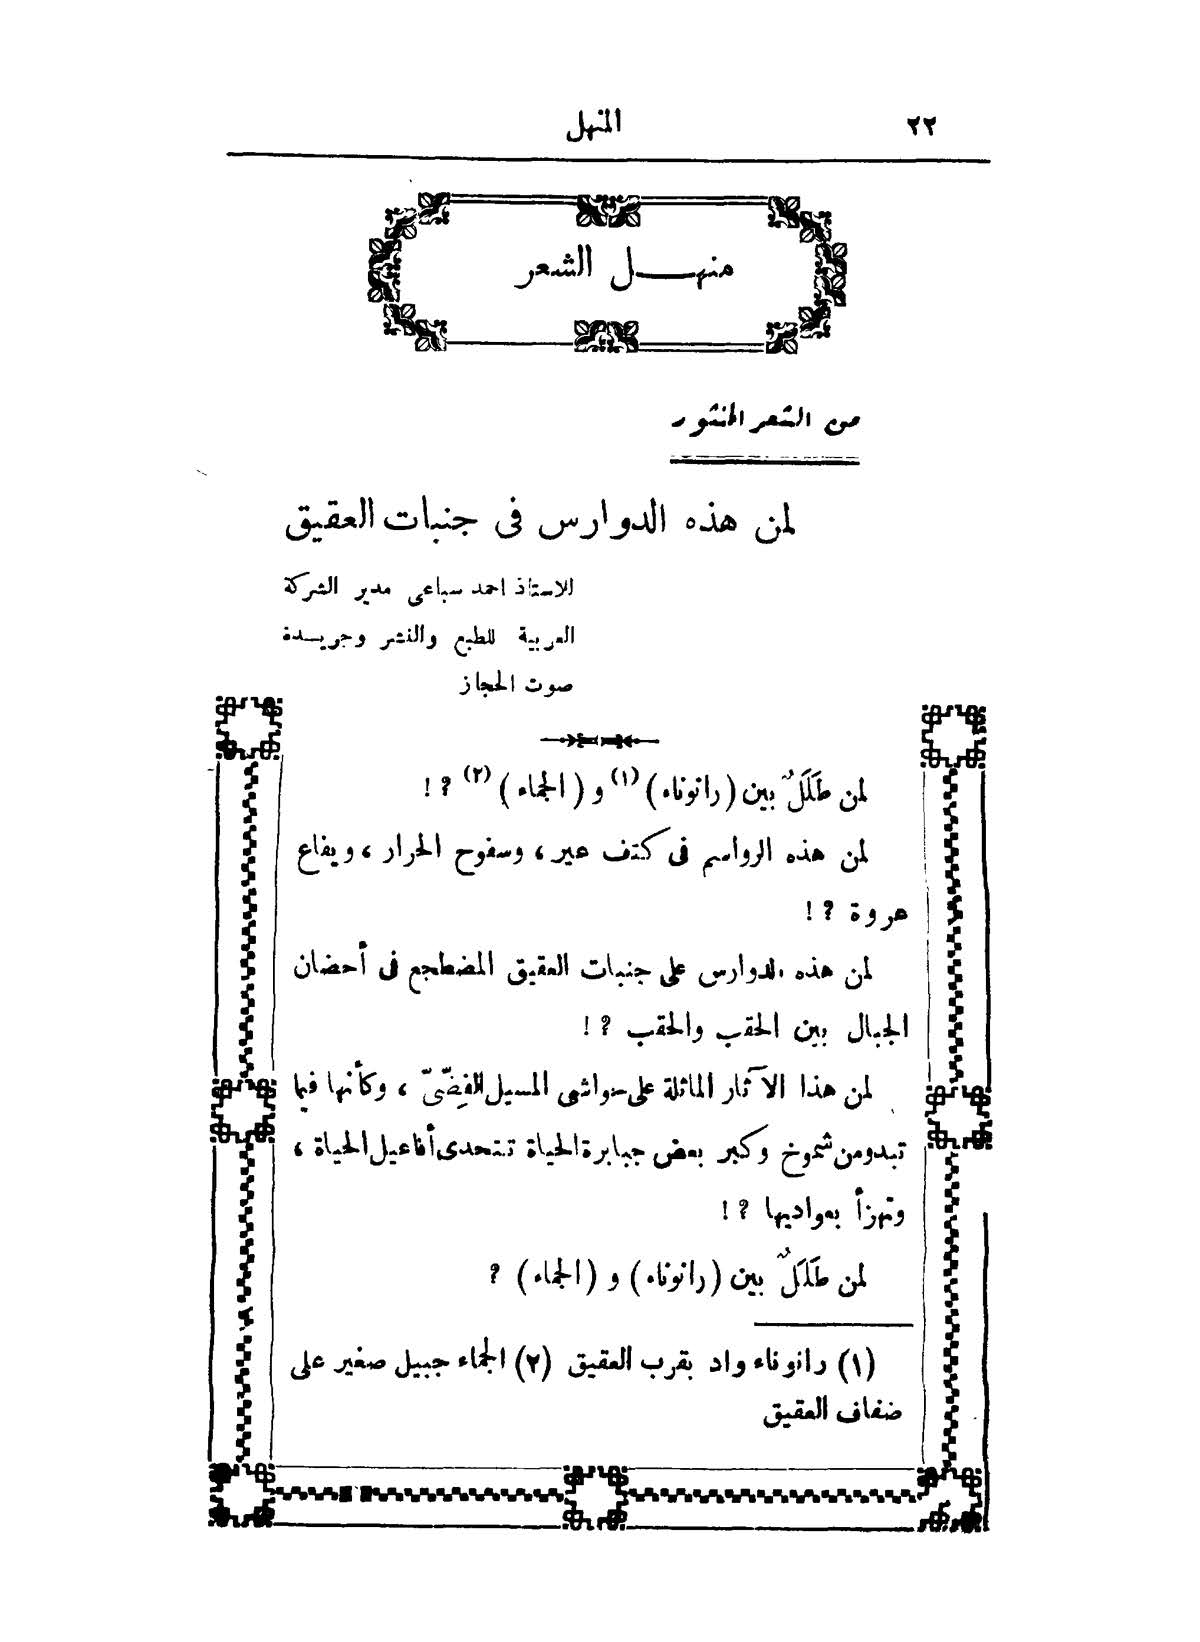 ٢٢ المنهل
منهل الشعر
من الشعر المنثور
لمن هذه الدوارس فى جنبات العقيق
للاستاذ احمد سباعى مدير الشركة
العربية للطبع والنشر وجريدة
صوت الحجاز
لمن طَلَلٌ بين (رانوناء) (١) و (الجماء) (٢) ؟!
لمن هذه الرواسم فى كتف عير، وسفوح الحرار، ويفاع
عروة ؟!
لمن هذه الدوارس على جنبات العقيق المضطجع فى أحضان
الجبال بين الحقب والحقب ؟!
لمن هذا الآثار الماثلة على حواشى المسيل الفِضّىّ، وكأنها فيما
تبدو من شموخ وكبر بعض جبابرة الحياة تتحدى أفاعيل الحياة،
وتهزأ بعواديها ؟!
لمن طَلَلٌ بين (رانوناء) و (الجماء) ؟
(١) رانوناء واد بقرب العقيق (٢) الجماء جبيل صغير على
ضفاف العقيق